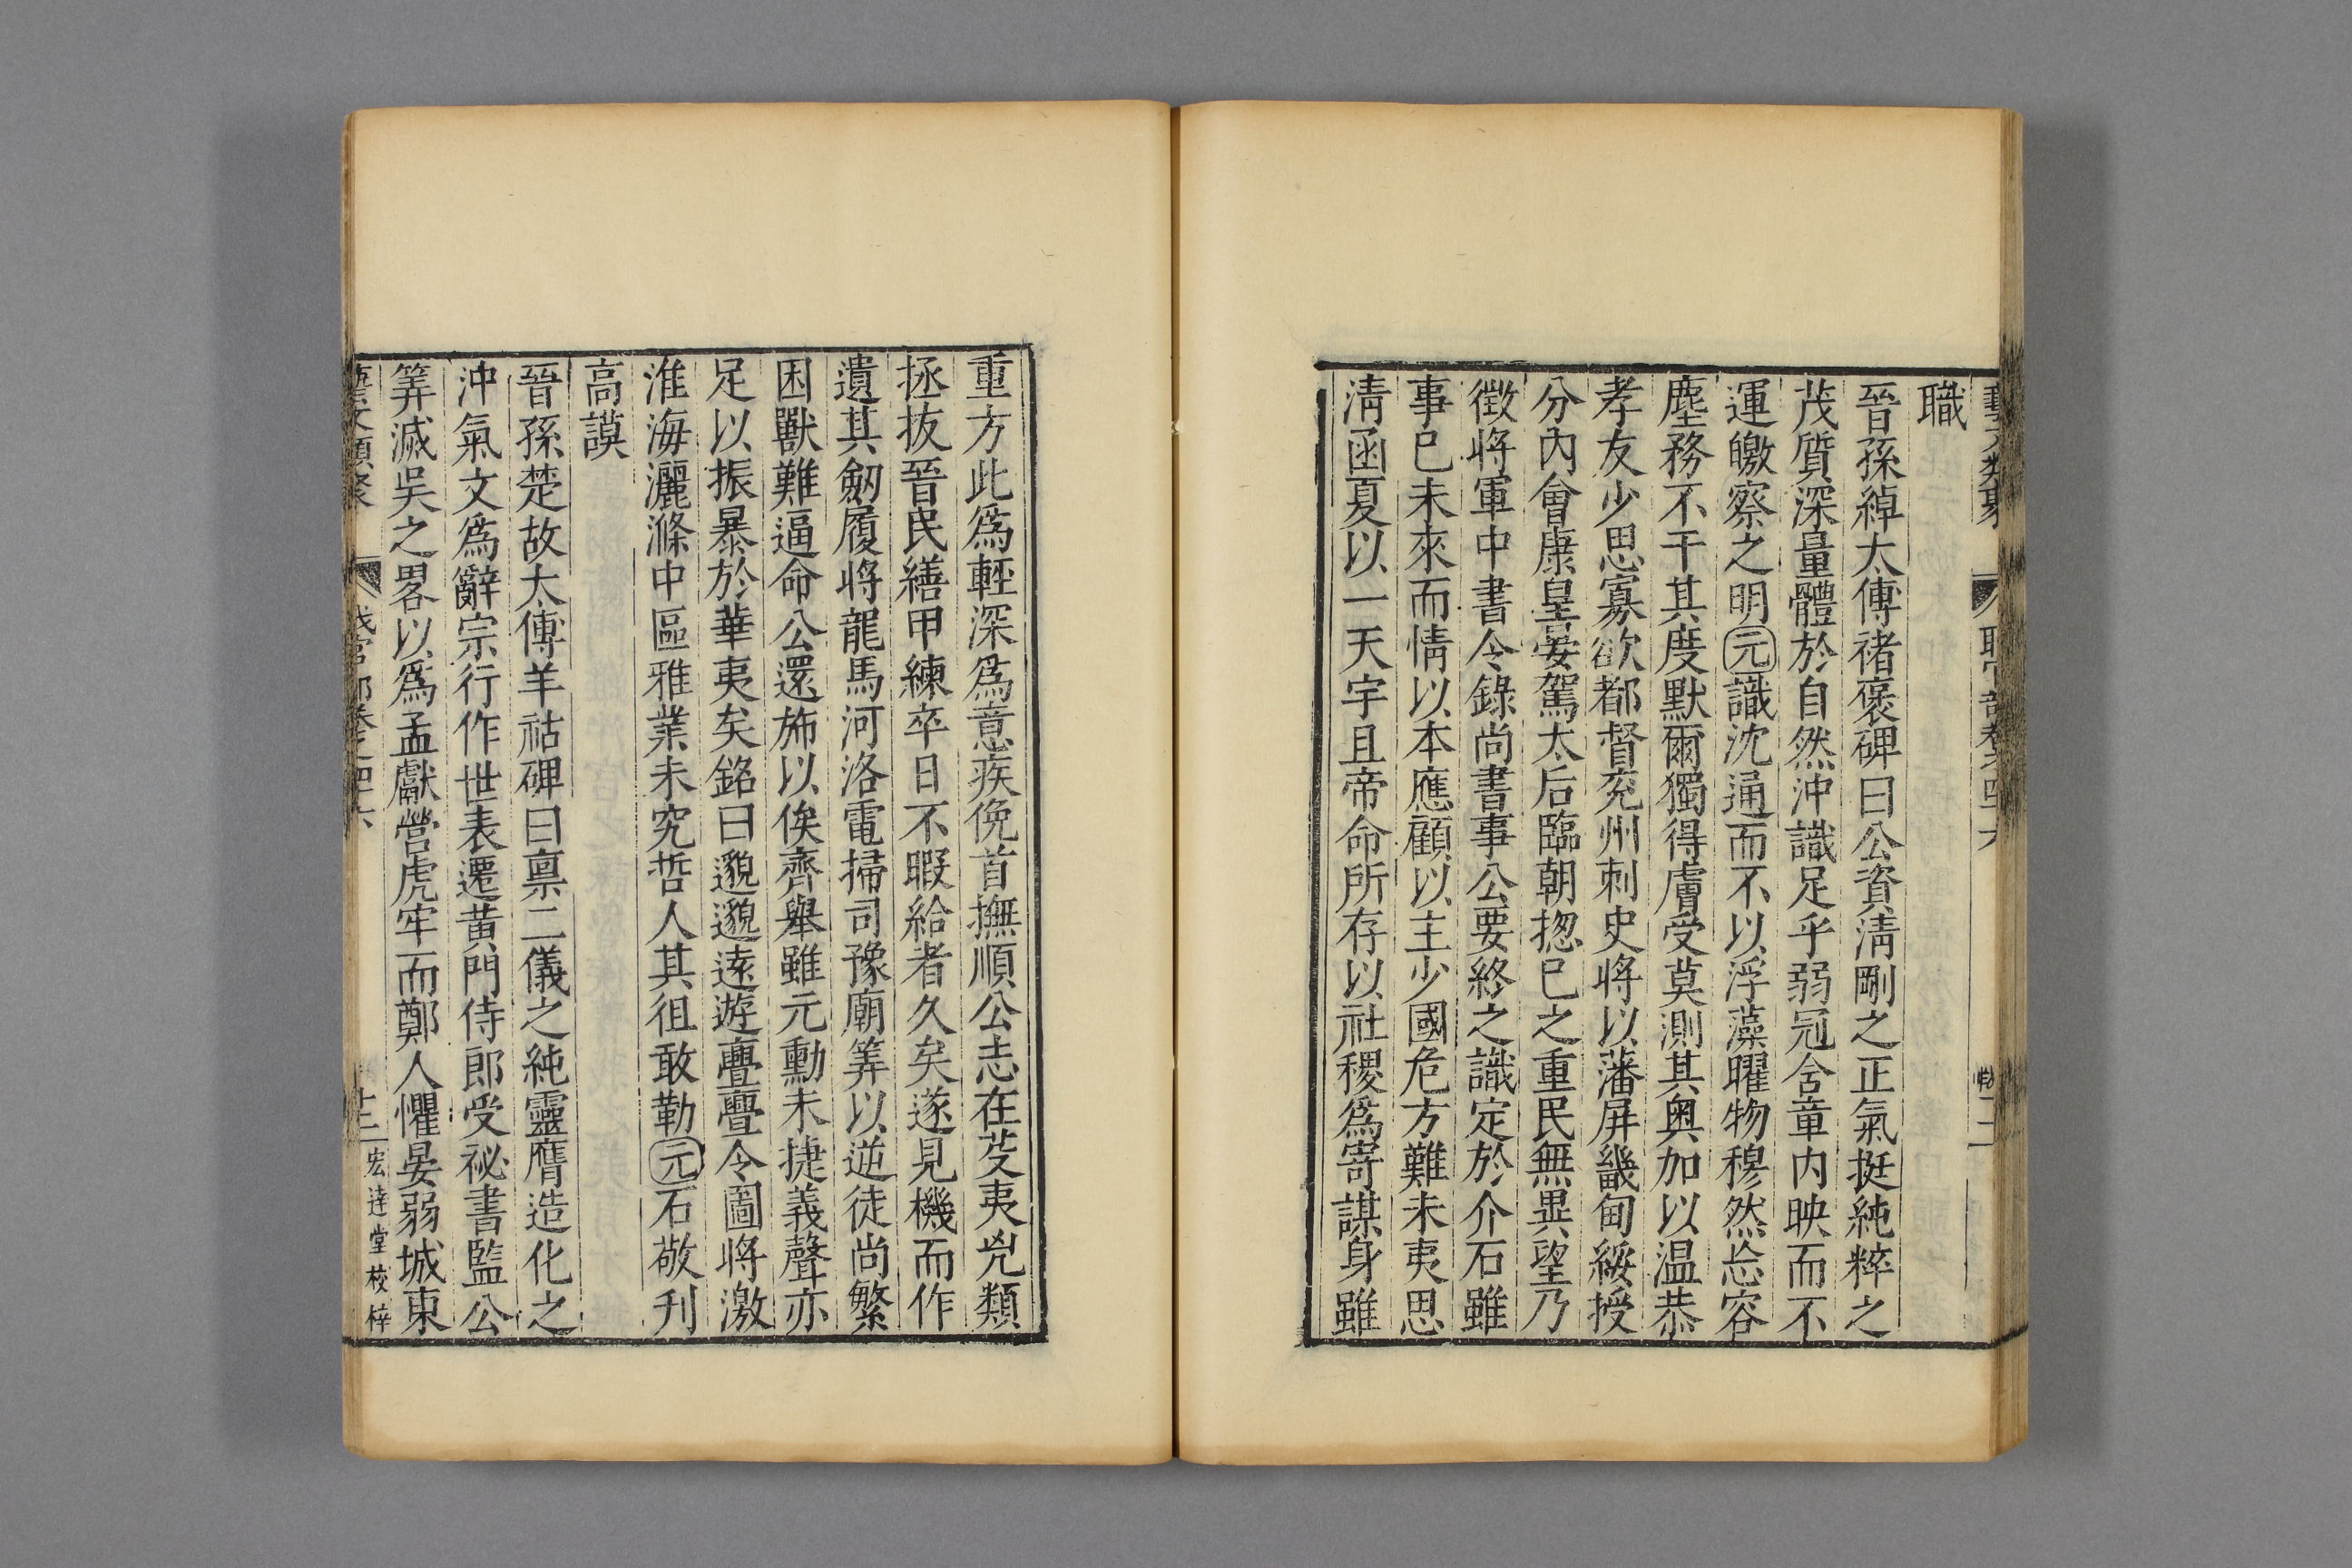 職
晉孫綽太傅褚褒碑曰公資淸剛之正氣挺純粹之
茂質深量體於自然沖識足乎弱冠含章內映而不
運皦察之明元識沈通而不以浮藻曜物穆然恬容
塵務不干其度默爾獨得膚受莫測其奧加以温恭
孝友少思寡欲都督兖州刺史將以藩屏畿甸綏授
分內會康皇晏駕太后臨朝揔已之重民無異望乃
徵將軍中書令錄尚書事公要終之識定於介石雖
事已未來而情以本應顧以主少國危方難未夷思
淸函夏以一天宇且帝命所存以社稷爲寄謀身雖
重方此爲輕深爲意疾俛首撫順公志在芟夷兇類
拯抜晉民繕甲練卒日不暇給者久矣遂見機而作
遺其劒履將龍馬河洛電掃司豫廟筭以逆徒尚繁
困獸難逼命公還施以俟齊舉雖元勳未捷義聲亦
足以振暴於華夷矣銘曰邈邈遠遊亹亹令圖將激
淮海灑滌中區雅業未究哲人其徂敢勒元石敬刋
高謨
晉孫楚故太傅羊祜碑曰禀二儀之純靈膺造化之
沖氣文爲辭宗行作世表遷黄門侍郎受祕書監公
筭滅吳之畧以爲孟獻營虎牢而鄭人懼晏弱城東
十三 宏達堂校梓